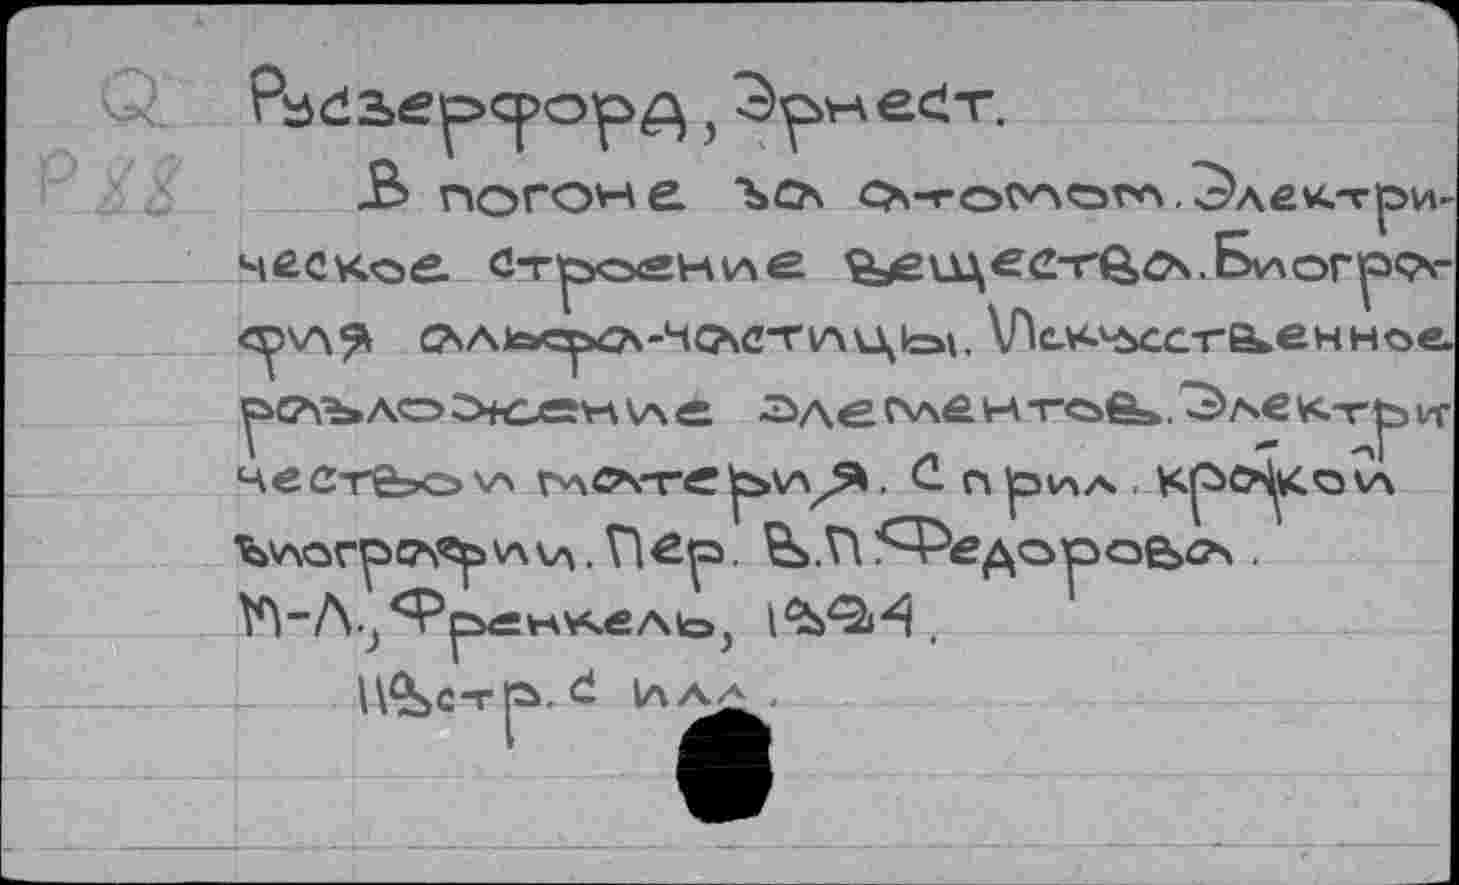 Q Рѫсзерфорд, Эрнест.
Р88 В погоне за атомом. Электри-
ческое строение вещества. Биогра-
фия альфа-частицы. Искусственное
разложение элементов. Электри-
чество и материя. С прил. краткой
биографии. Пер. В.П. Федорова.
М-Л., Френкель, 1924.
стр. с илл.